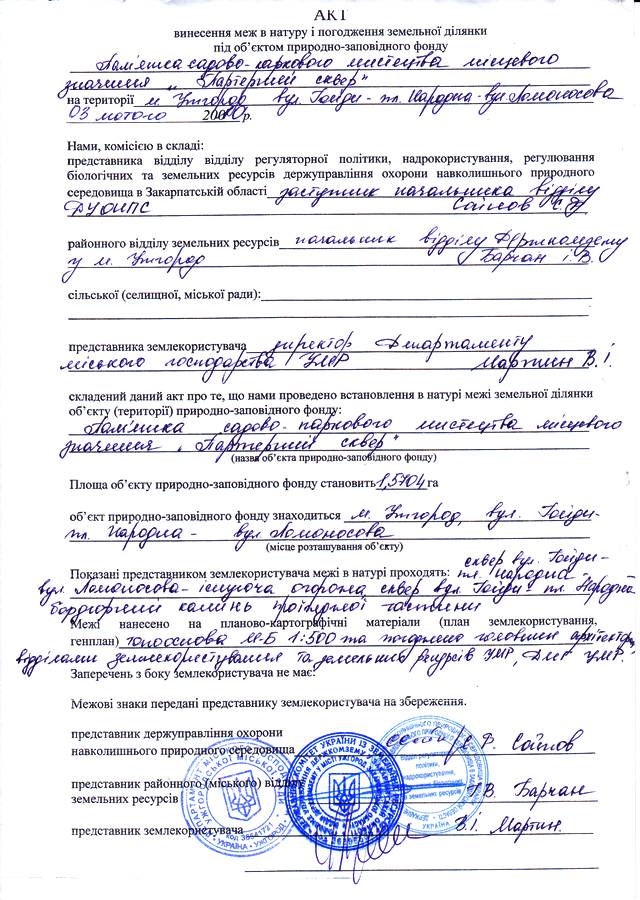 АКТ
винесення меж в натуру і погодження земельної ділянки
під об’єктом природно-заповідного фонду
Пам'ятка садово-паркового мистецтва місцевого
значення „Партерний сквер"
на території м. Ужгород вул. Гойди - пл. Народна - вул. Ломоносова
03 лютого 2010р.
Нами, комісією в складі:
представника відділу відділу регуляторної політики, надрокористування, регулювання
біологічних та земельних ресурсів держуправління охорони навколишнього природного
середовища в Закарпатській області заступник начальника відділу
ДУОНПС Сойнов С.Ф.
районного відділу земельних ресурсів начальник відділу Держкомзему
у м. Ужгород Барчан І.В.
сільської (селищної, міської ради):
представника землекористувача директор Департаменту
міського господарства УМР Мартин В.І.
складений даний акт про те, що нами проведено встановлення в натурі межі земельної ділянки
об’єкту (території) природно-заповідного фонду:
Пам'ятка садово-паркового мистецтва місцевого
значення „Партерний сквер"
(назва об’єкта природно-заповідного фонду)
Площа об’єкту природно-заповідного фонду становить 1,5704 га
об’єкт природно-заповідного фонду знаходиться м. Ужгород, вул. Гойди-
пл. Народна - вул. Ломоносова
(місце розташування об’єкту)
сквер вул. Гойди-
Показані представником землекористувача межі в натурі проходять: пл. Народна
вул. Ломоносова - існуюча огорожа, сквер вул. Гойди - пл. Народна
бордюрний камінь проїзної частини
Межі нанесено на планово-картографічні матеріали (план землекористування,
генплан) топооснова М-Б 1:500 та погоджено головним архітектором,
відділами землекористування та земельних ресурсів УМР, ДМГ УМР.
Заперечень з боку землекористувача не має:
Межові знаки передані представнику землекористувача на збереження.
представник держуправління охорони
навколишнього природного середовища С.Ф. Сойнов
представник районного (міського) відділу
земельних ресурсів І.В. Барчан
представник землекористувача В.І. Мартин.
УКРАЇНА • УЖГОРОД